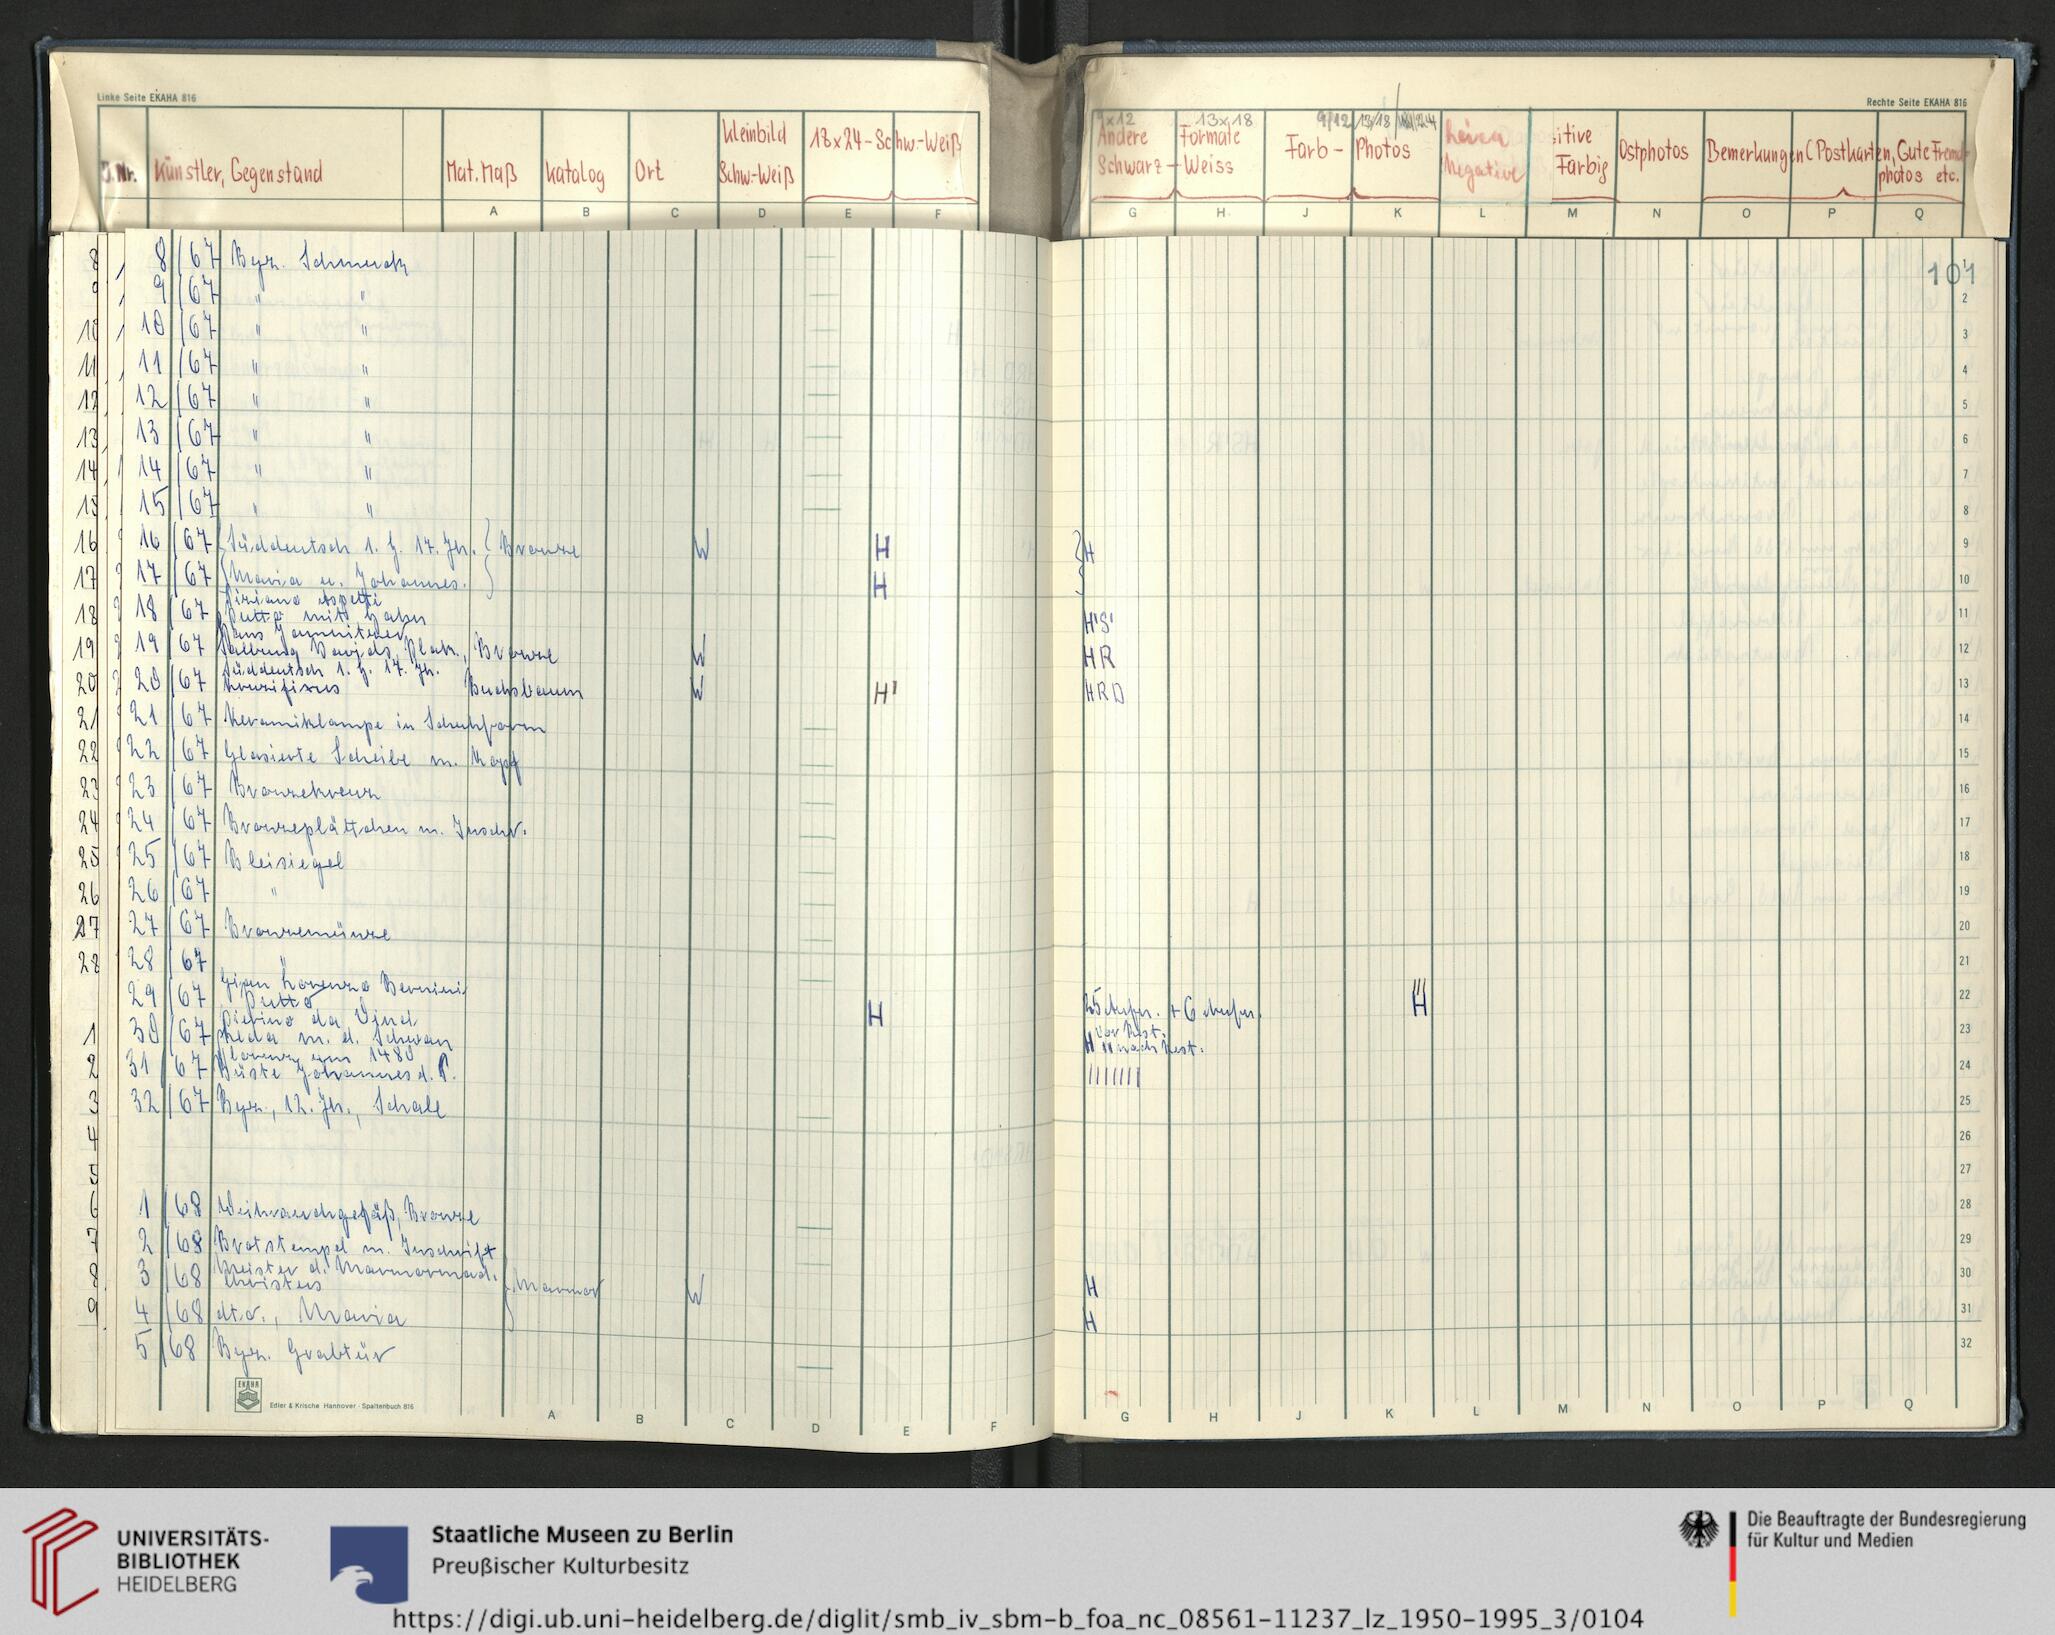 Linke Seite EKAHA 816
Rechte Seite EKAHA 816
J.Nr. Künstler, Gegenstand Mat. Maß Katalog Ort Kleinbild Schw.-Weiß 18x24-Schw.-Weiß
9x12 13x18 9/12 13/18 18/24
Andere Formate Schwarz-Weiss Farb-Photos Negative Farbig Ostphotos Bemerkungen (Postkarten, Gute Fremdphotos etc.
A B C D E F
G H J K L M N O P Q
101
8/67 Byz. Schmuck
9/67 " "
10/67 " "
11/67 " "
12/67 " "
13/67 " "
14/67 " "
15/67 " "
16/67 Süddeutsch 1. H. 17. Jh. Bronze W H H
17/67 Maria u. Johannes. H
18/67 Tiziano Aspetti
Putto mit Hahn H'S'
19/67 Hans Jamnitzer
Salbung Davids, Plak., Bronze W HR
20/67 Süddeutsch 1. H. 17. Jh.
Kruzifixus Buchsbaum W H' HRD
21/67 Keramiklampe in Schuhform
22/67 Glasierte Scheibe m. Kopf
23/67 Bronzekreuz
24/67 Bronzeplättchen m. Inschr.
25/67 Bleisiegel
26/67 "
27/67 Bronzemünze
28/67 "
29/67 Gian Lorenzo Bernini
Putto H 25 Aufn. + 6 Aufn. H
30/67 Pierino da Vinci
Leda m. d. Schwan vor Rest.
H " nach Rest.
31/67 Florenz um 1480
Büste Johannes d. T.
32/67 Byz., 12. Jh., Schale
1/68 Weihrauchgefäß, Bronze
2/68 Brotstempel m. Inschrift
3/68 Meister d. Marmormad.
Christus Marmor W H
4/68 dto., Maria H
5/68 Byz. Grabtür
8
9
10
11
12
13
14
15
16
17
18
19
20
21
22
23
24
25
26
27
28
1
2
3
4
5
6
7
8
9
2
3
4
5
6
7
8
9
10
11
12
13
14
15
16
17
18
19
20
21
22
23
24
25
26
27
28
29
30
31
32
EKAHA
Edler & Krische Hannover · Spaltenbuch 816
A B C D E F
G H J K L M N O P Q
UNIVERSITÄTS-
BIBLIOTHEK
HEIDELBERG
Staatliche Museen zu Berlin
Preußischer Kulturbesitz
Die Beauftragte der Bundesregierung
für Kultur und Medien
https://digi.ub.uni-heidelberg.de/diglit/smb_iv_sbm-b_foa_nc_08561-11237_lz_1950-1995_3/0104